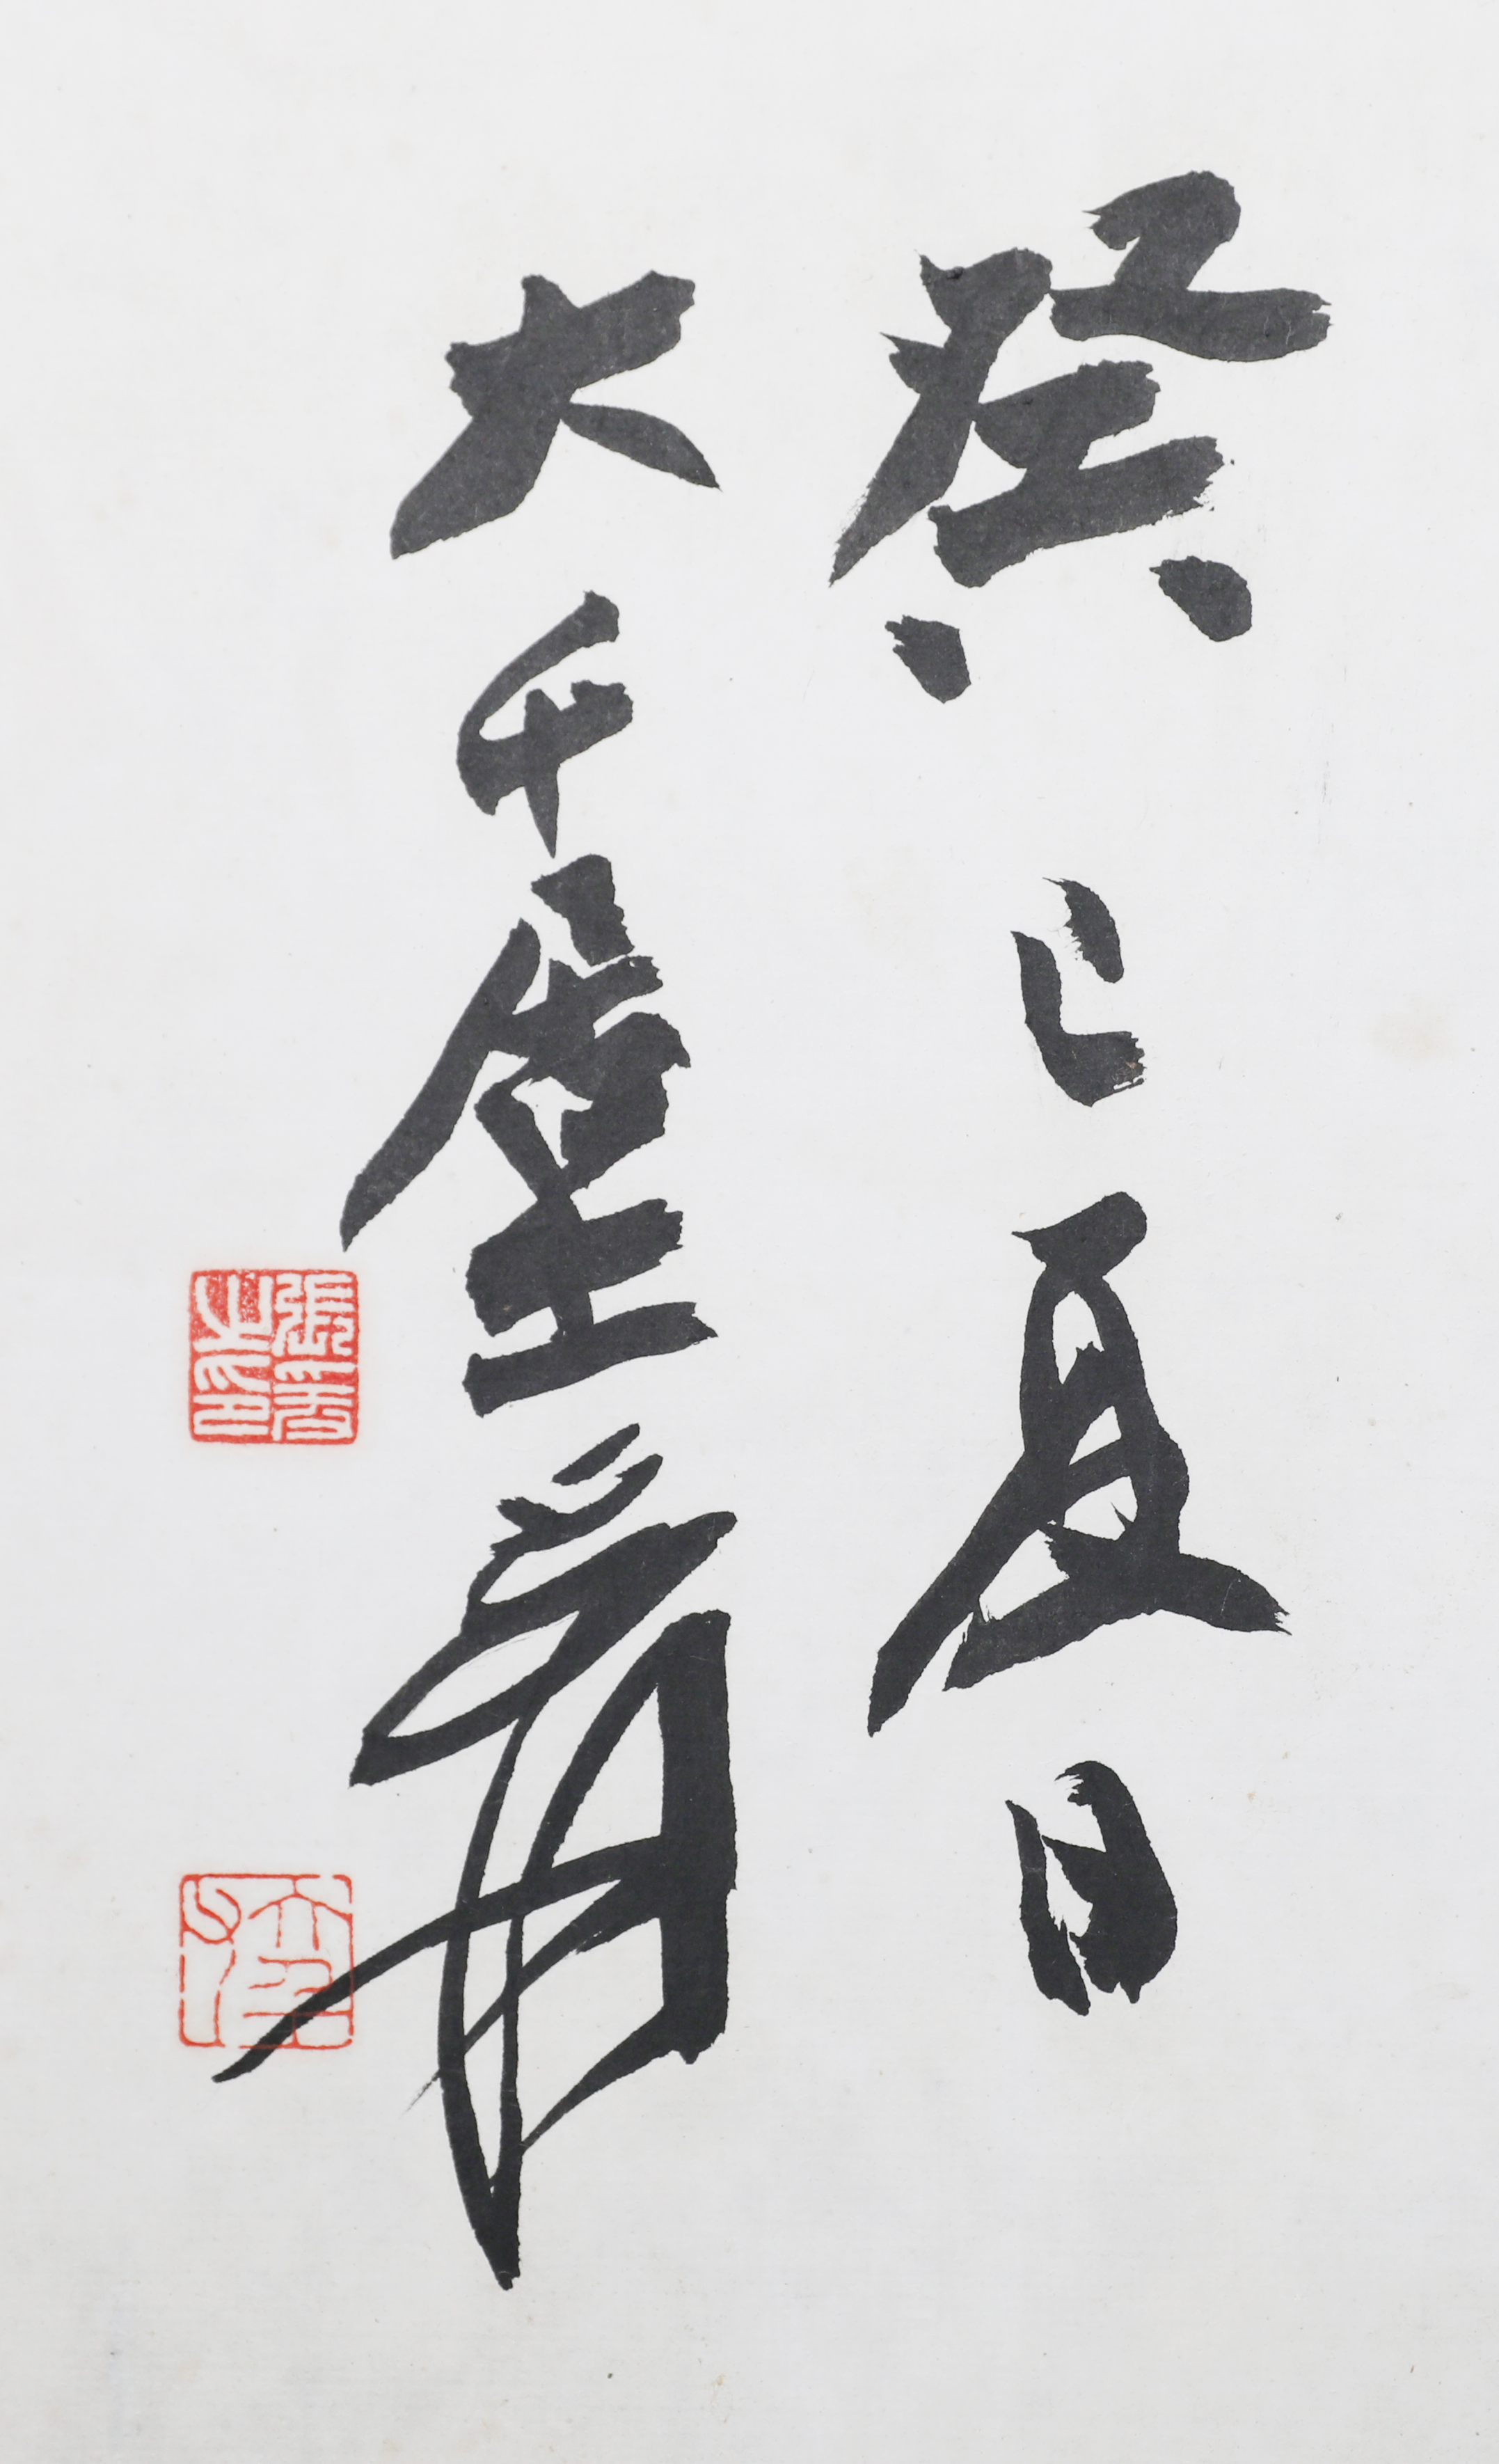 癸巳夏日
大千居士爰
張爰之印